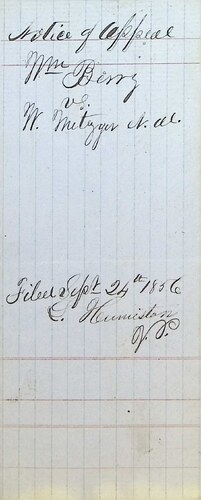 Notice of Appeal
Wm Berry
vs.
W. Metzger et al.
Filed Sept 24th 1856
L. Humiston
J.P.